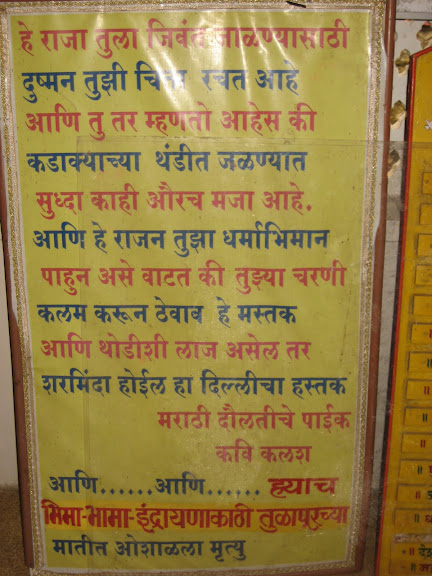 हे राजा तुला जिवंत जाळण्यासाठी
दुष्मन तुझी चिता रचत आहे
आणि तु तर म्हणतो आहेस की
कडाक्याच्या थंडीत जळण्यात
सुध्दा काही औरच मजा आहे.
आणि हे राजन तुझा धर्माभिमान
पाहुन असे वाटत की तुझ्या चरणी
कलम करून ठेवाव हे मस्तक
आणि थोडीशी लाज असेल तर
शरमिंदा होईल हा दिल्लीचा हस्तक
मराठी दौलतीचे पाईक
कवि कलश
आणि......आणि...... ह्याच
भिमा-भामा-इंद्रायणाकाठी तुळापुरच्या
मातीत ओशाळला मृत्यु